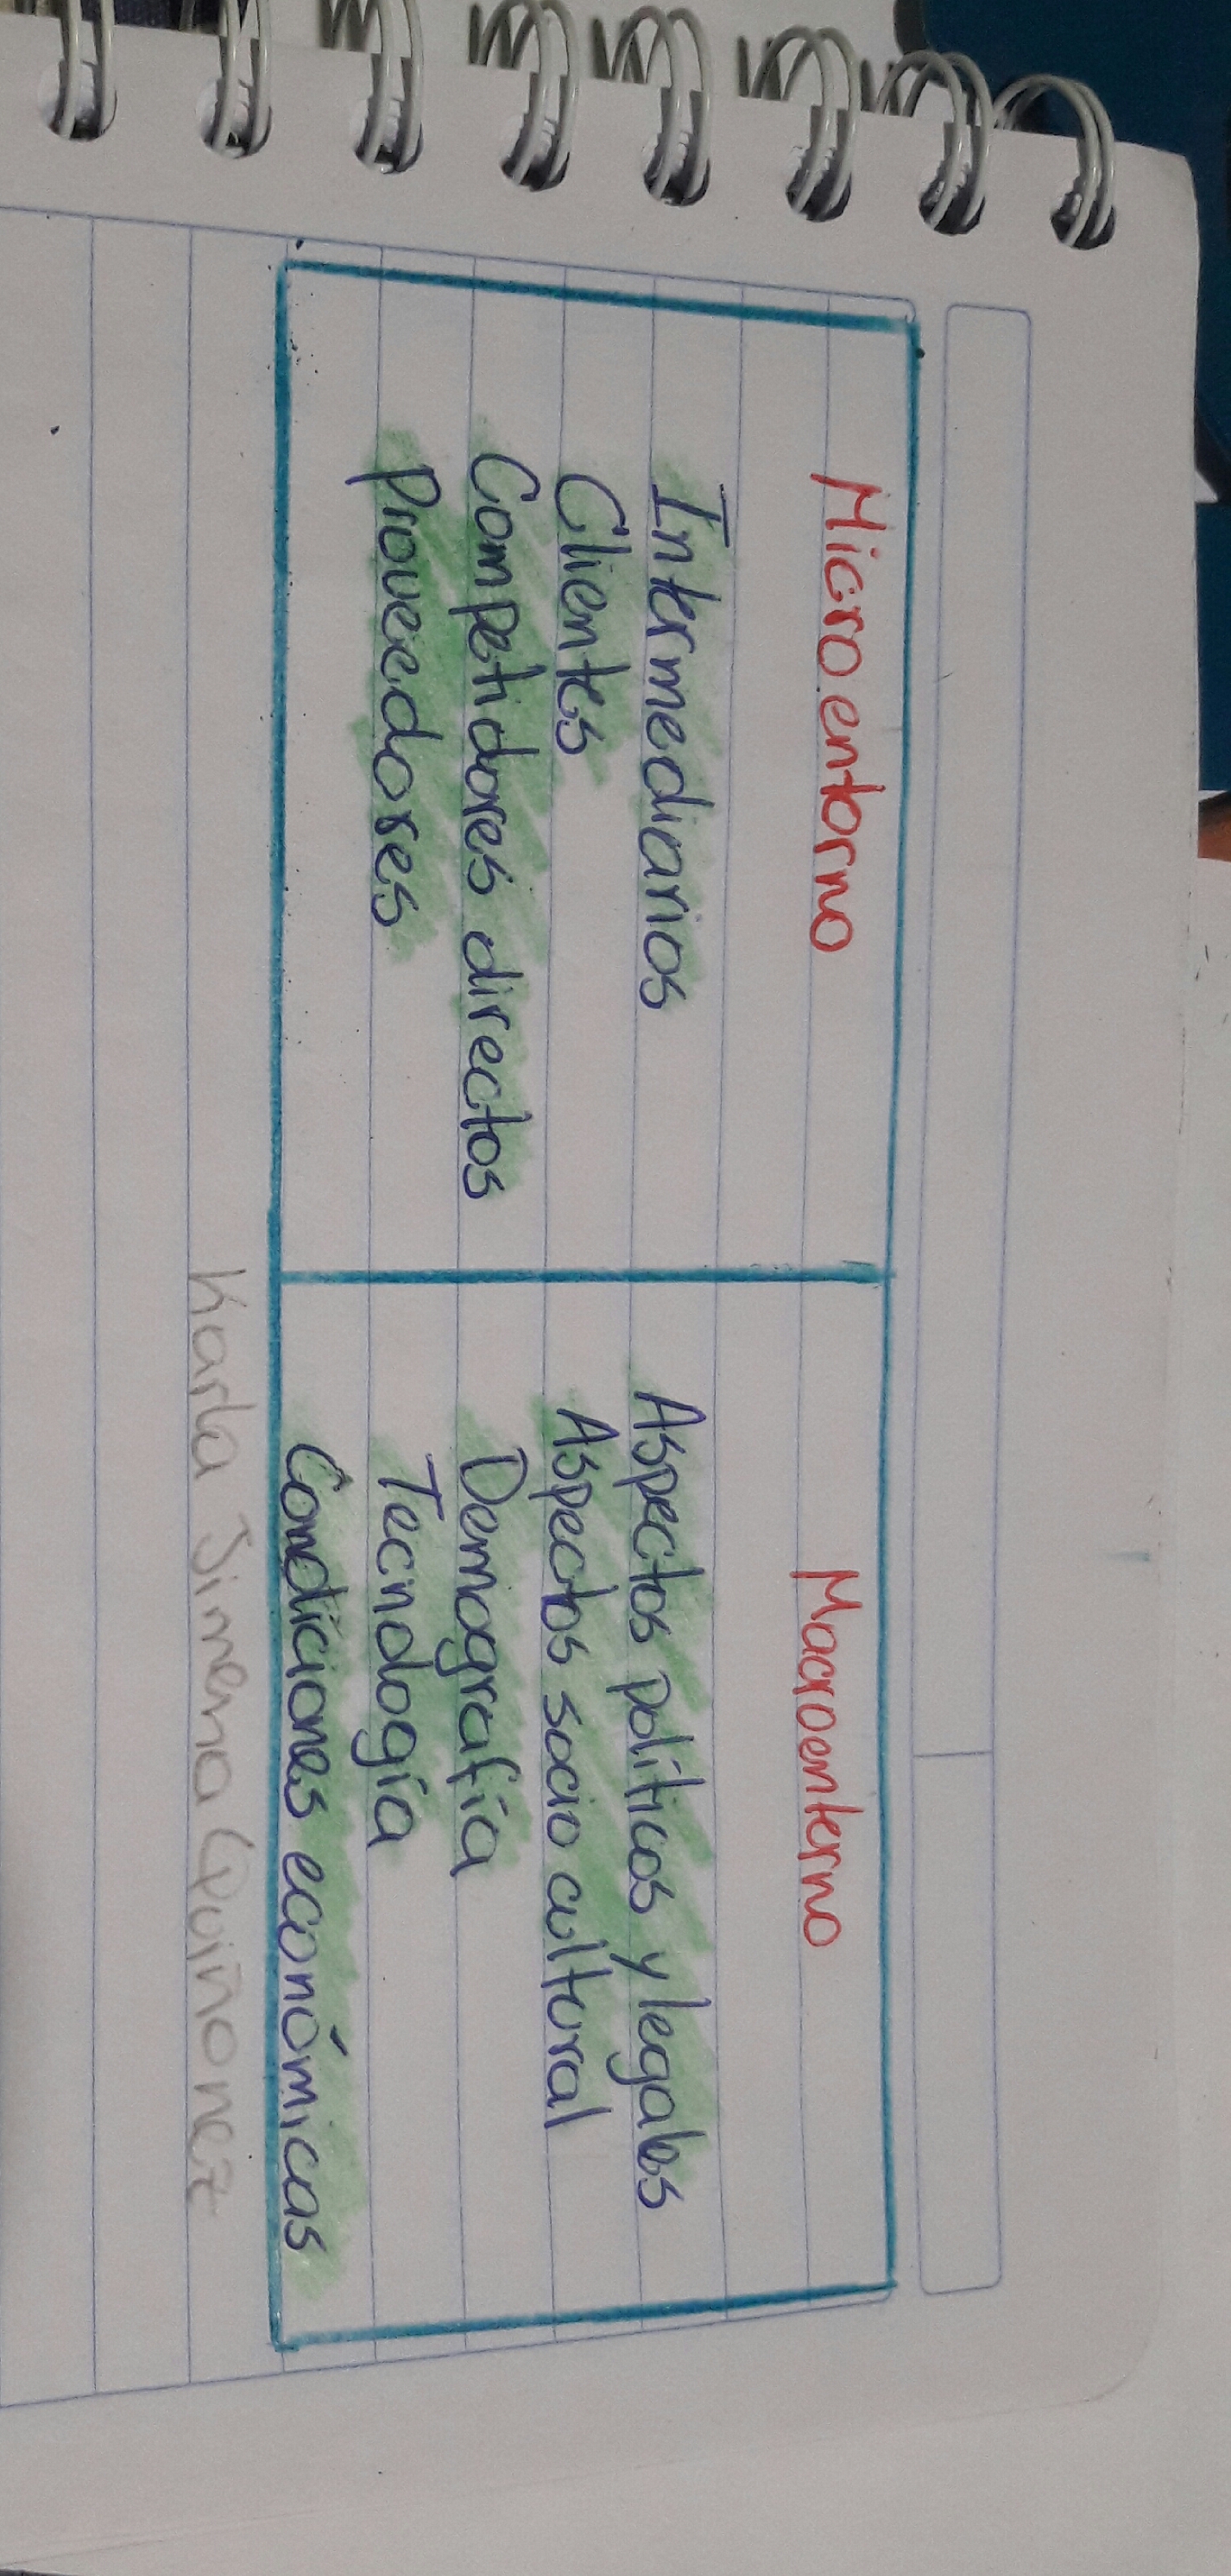 Microentorno
Intermediarios
Clientes
Competidores directos
Proveedores
Macroentorno
Aspectos políticos y legales
Aspectos socio cultural
Demografía
Tecnología
Condiciones económicas
Karla Jimena Quiñonez